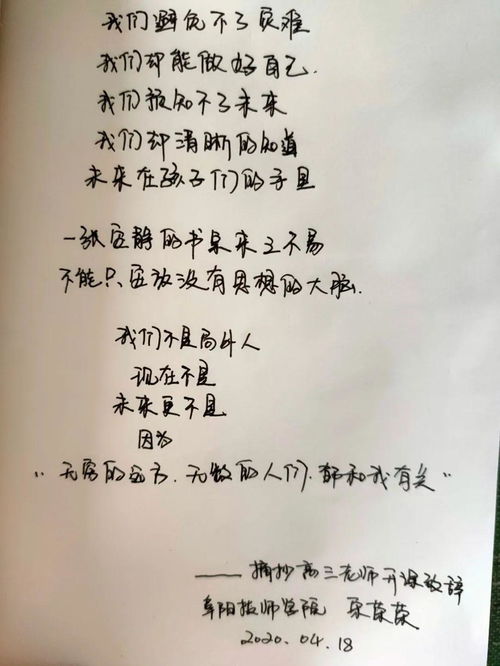 我们避免不了灾难
我们却能做好自己.
我们预知不了未来
我们却清晰的知道
未来在孩子们的手里
一张安静的书桌来之不易
不能只安放没有思想的大脑.
我们不是局外人
现在不是
未来更不是
因为
"无穷的远方.无数的人们.都和我有关"
——摘抄高三老师开课致辞
阜阳技师学院 荣荣
2020.04.18